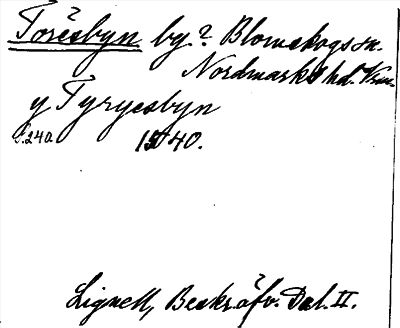 Toresbyn by? Blomskogs sn.
Nordmarks hd. Vrm.
y Tyryesbyn
S. 240 1540.
Lignell, Beskr. öfv. Dal. II.